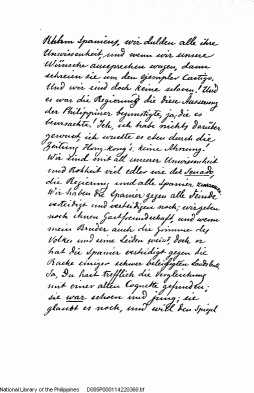 Ruhm Spaniens, wir dulden alle ihre
Unwissenheit, und wenn wir unsere
Wünsche aussprechen wagen, dann
schreien sie um den ejemplar Castigo.
Und wir sind doch keine sclaven! Und
es war die Regierung die diese
der Philippiner begunstigte, ja, die es
Ich, ich habe nichts darüber
gewusst, ich wusste es eben durch die
Zeitung Hong-kong's, keine Ahnung!
Wir sind mit all unserer Unwissenheit
und Rohheit viel edler wie der Senado
die Regierung und alle Spanier
Wir haben die Spanier gegen alle Feinde
vertheidigt und vertheidigen noch; wir geben
noch ihnen Gastfreundschaft, und wenn
mein Bruder auch die Grimme des
Volkes und seine Leiden weiss, doch er
hat die Spanier vertheidigt gegen die
Rache einiger schwer beleidigten
Ja, Du hast trefflich die Vergleichung
mit einer alten Coquette gefunden;
sie war schoen und jung; sie
glaubt es noch, und will den Spiegel
National Library of the Philippines